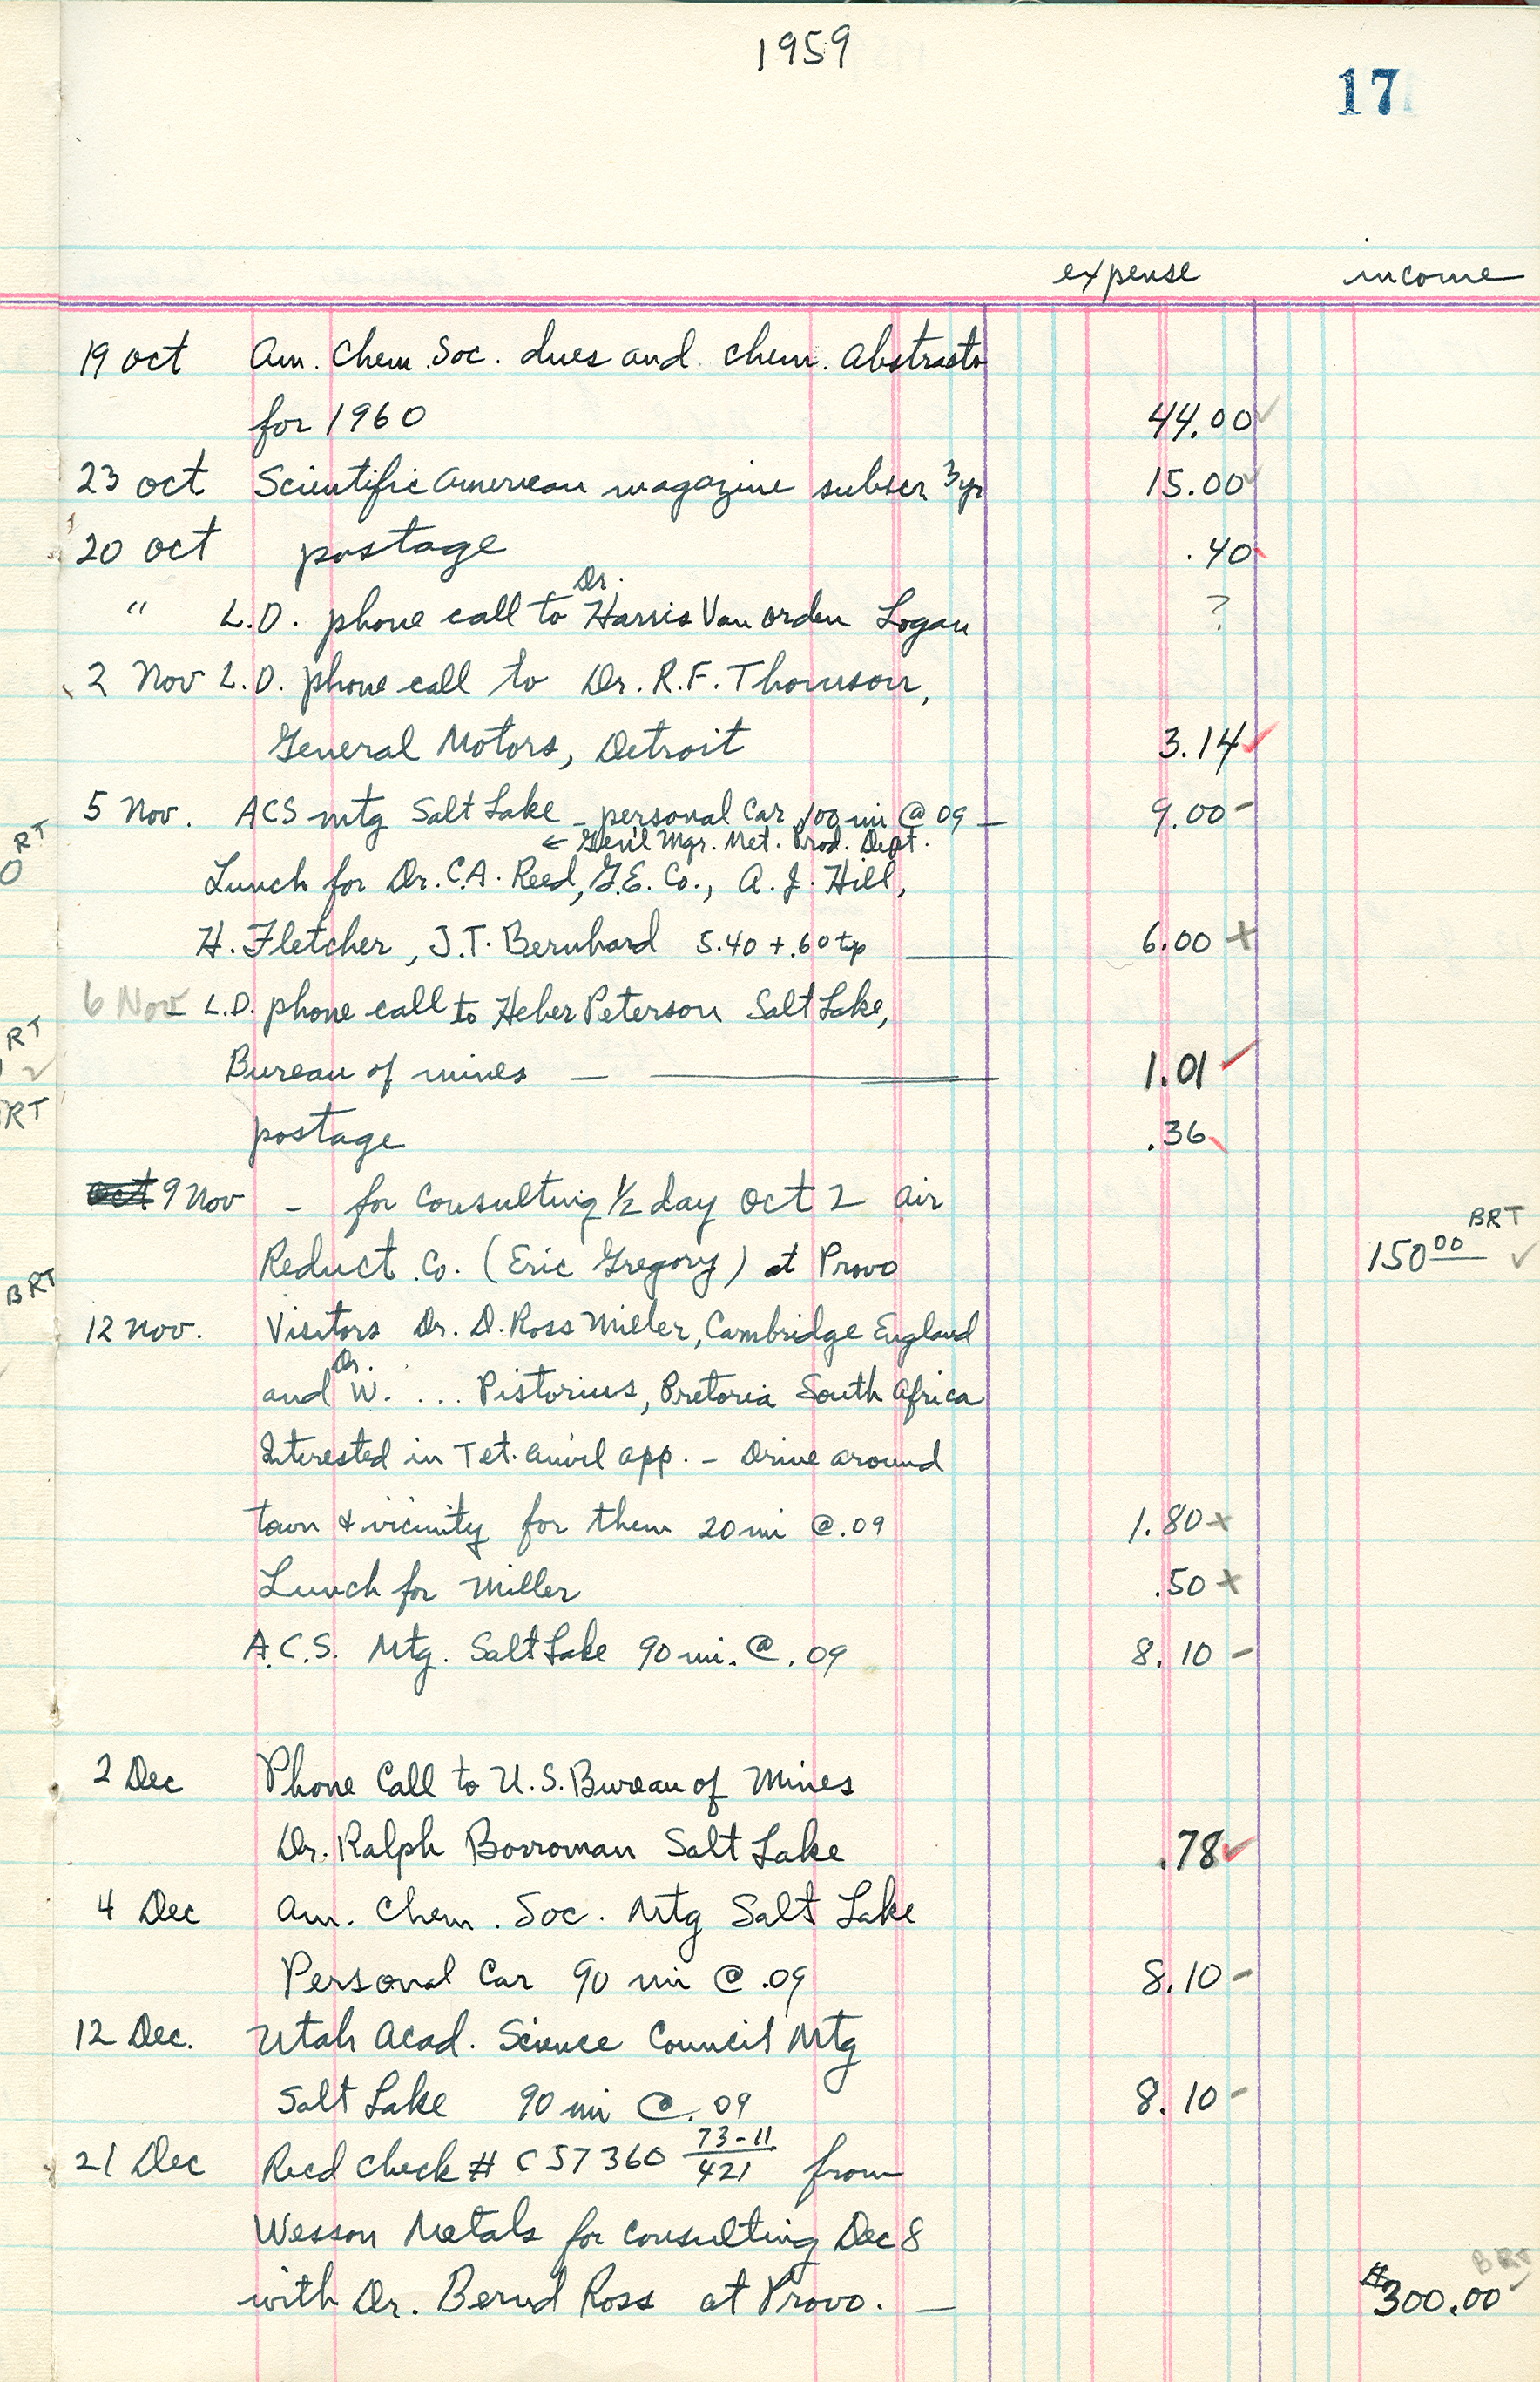 1959
17
expense income
19 Oct Am. Chem. Soc. dues and chem. abstracts
for 1960 44.00 ✓
23 Oct Scientific American magazine subscr 3yr 15.00 ✓
20 Oct postage .40
" L.D. phone call to Dr. Harris Van Orden Logan ?
2 Nov L.D. phone call to Dr. R.F. Thomson,
General Motors, Detroit 3.14 ✓
5 Nov. ACS mtg Salt Lake - personal Car 100 mi @ 09 — 9.00 -
← Gen'l Mgr. Met. Prod. Dept.
Lunch for Dr. C.A. Reed, G.E. Co., A. J. Hill,
H. Fletcher, J.T. Bernhard 5.40 + .60 tip — 6.00 +
6 Nov - L.D. phone call to Heber Peterson Salt Lake,
Bureau of mines — — 1.01 ✓
postage .36
Oct 9 Nov - for consulting 1/2 day Oct 2 Air
BRT
Reduct. Co. (Eric Gregory) at Provo 150 00 ✓
12 Nov. Visitors Dr. D. Ross Miller, Cambridge England
and Dr. W. ... Pistorius, Pretoria South Africa
Interested in Tet. Anvil app. - Drive around
town & vicinity for them 20 mi @ .09 1.80 +
Lunch for Miller .50 +
A.C.S. Mtg. Salt Lake 90 mi. @ .09 8.10 -
2 Dec Phone Call to U.S. Bureau of Mines
Dr. Ralph Borroman Salt Lake .78 ✓
4 Dec Am. Chem. Soc. Mtg Salt Lake
Personal Car 90 mi @ .09 8.10 -
12 Dec. Utah Acad. Science Council Mtg
Salt Lake 90 mi @ .09 8.10 -
21 Dec Recd check # C57360 73-11/421 from
Wesson Metals for consulting Dec 8
BRT
with Dr. Bernd Ross at Provo. — $300.00 ✓
RT
0
RT
✓
RT
BRT